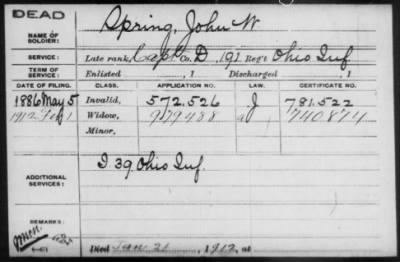 DEAD
NAME OF SOLDIER: Spring, John W.
SERVICE: Late rank, Capt Co. D, 191 Reg't Ohio Inf
TERM OF SERVICE: Enlisted , 1 Discharged , 1
DATE OF FILING. CLASS. APPLICATION NO. LAW. CERTIFICATE NO.
1886 May 5 Invalid, 572.526 J 781.522
1912 Feb 1 Widow, 979488 740874
Minor,
ADDITIONAL SERVICES: I 39 Ohio Inf.
REMARKS:
Died Jan 21, 1912, at